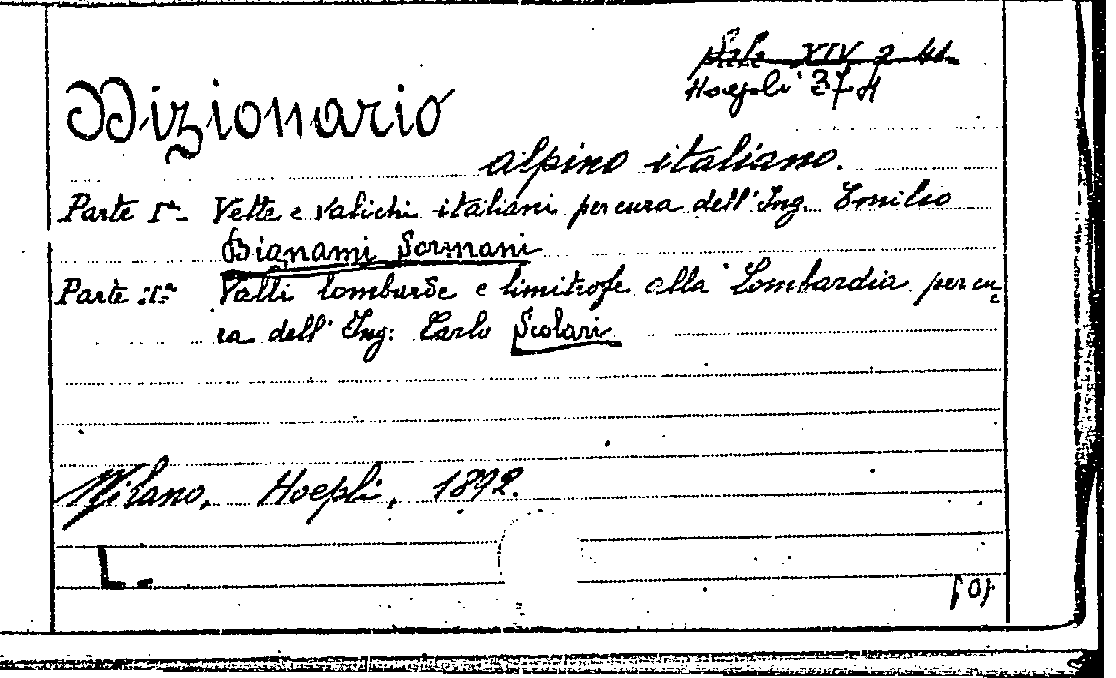 Sala XIV 2 41
Hoepli 37 A
Dizionario
alpino italiano.
Parte Iª Vette e valichi italiani per cura dell'Ing. Emilio
Bignami Sormani
Parte IIª Valli lombarde e limitrofe alla Lombardia per cu-
ra dell'Ing: Carlo Scolari
Milano, Hoepli, 1892.
L.